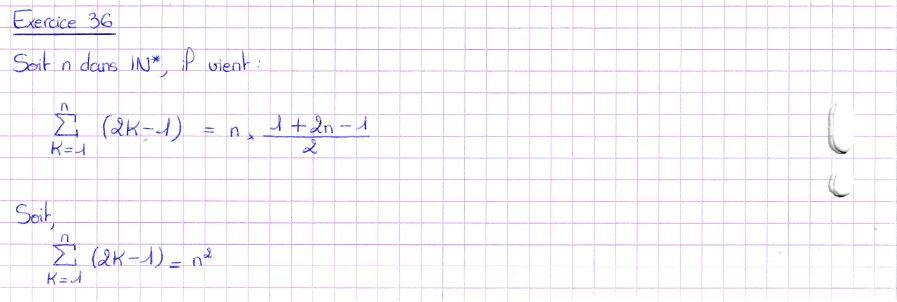 Exercice 36
Soit n dans IN*, il vient :
n
∑ (2K-1) = n × (1+2n-1)/2
K=1
Soit,
n
∑ (2K-1) = n²
K=1